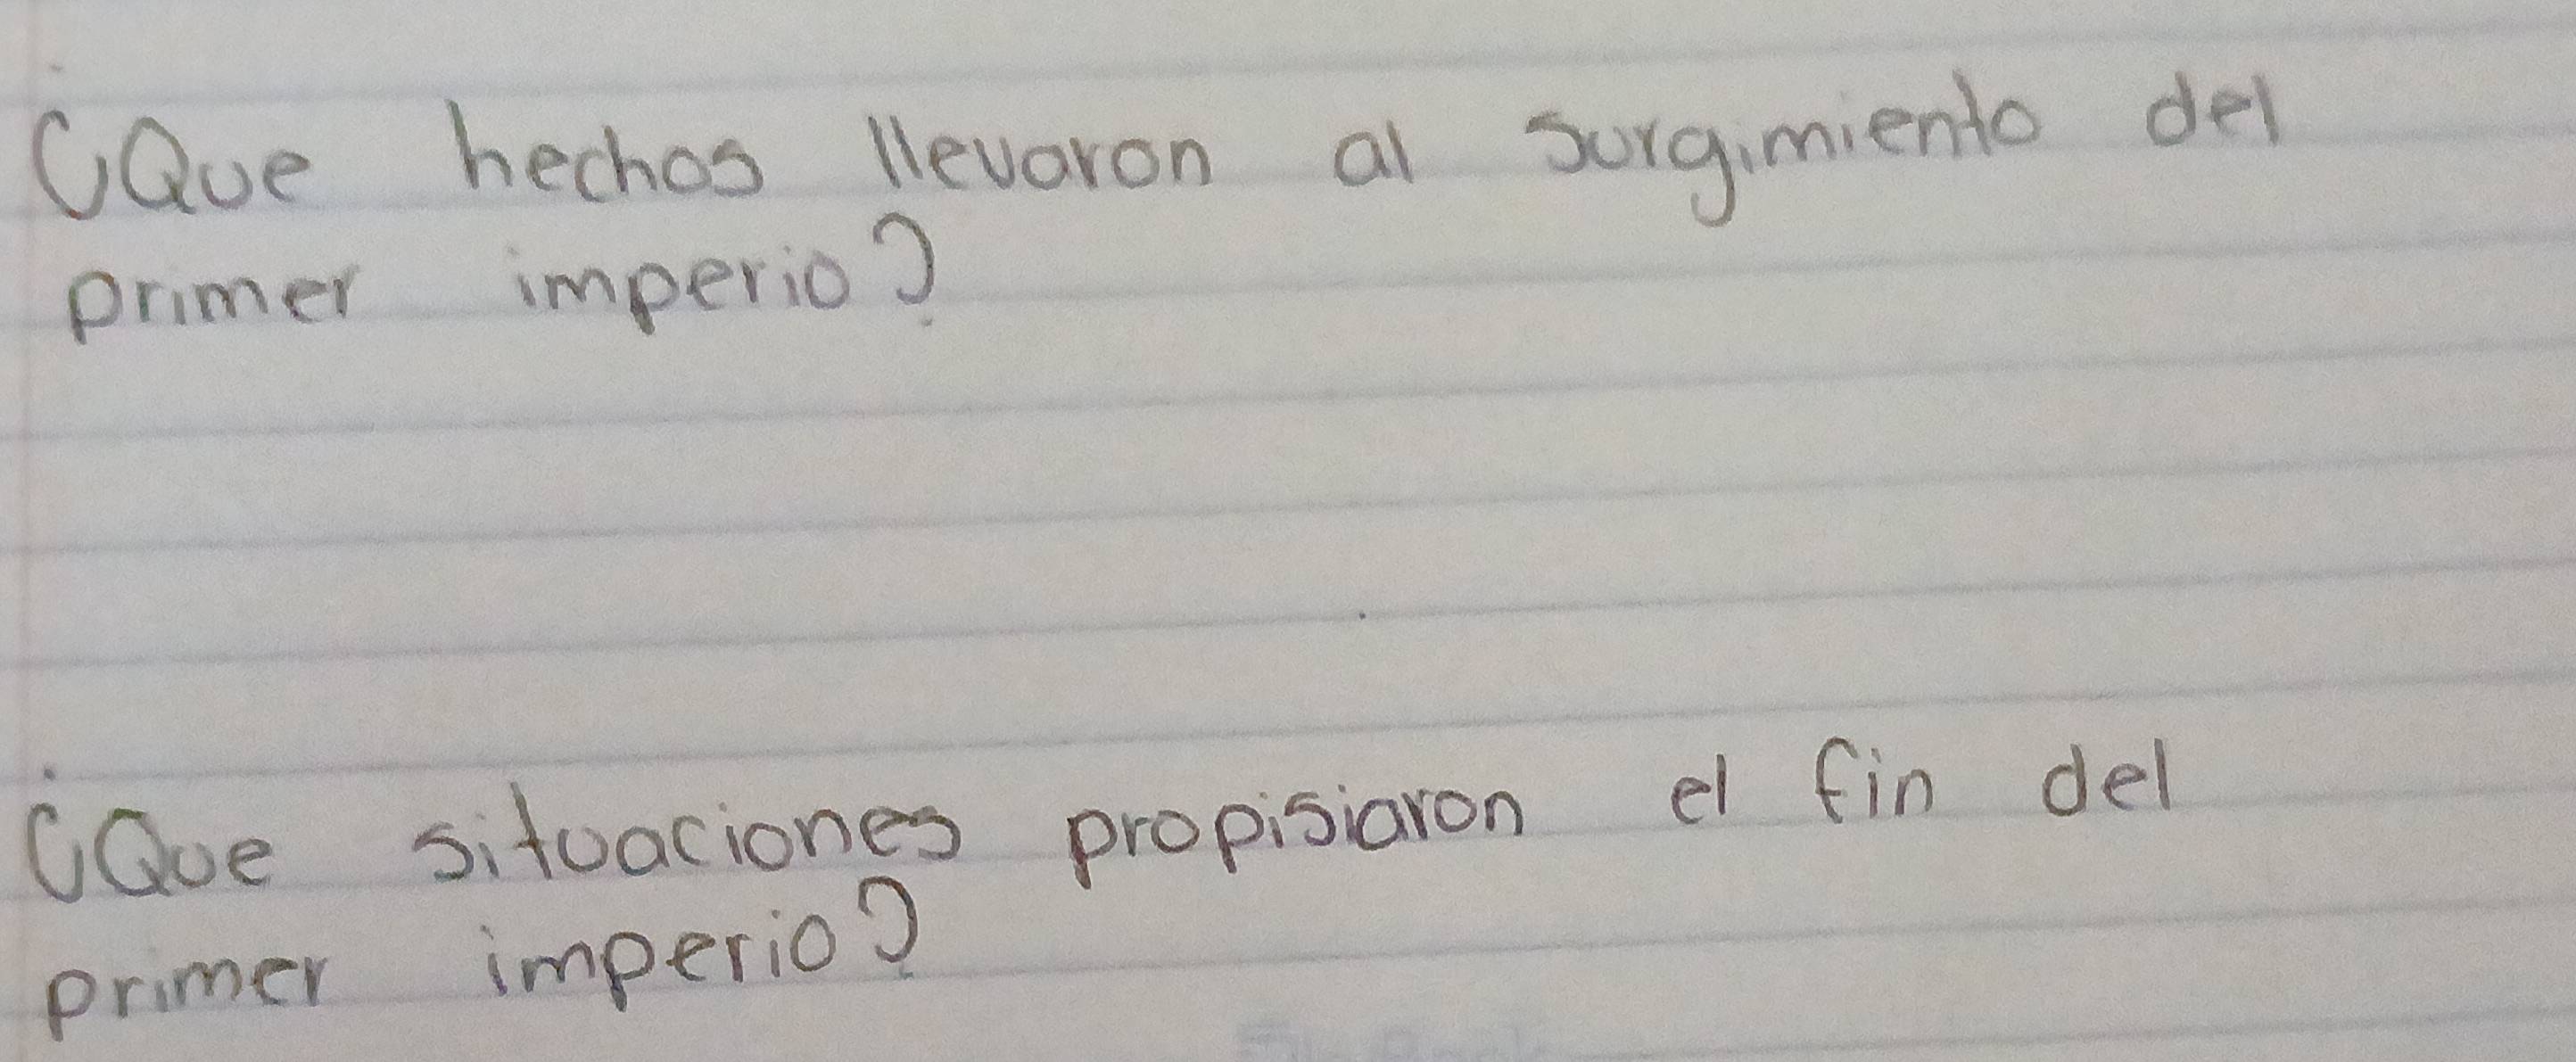 ¿Que hechos llevaron al surgimiento del
primer imperio?
¿Que situaciones propisiaron el fin del
primer imperio?